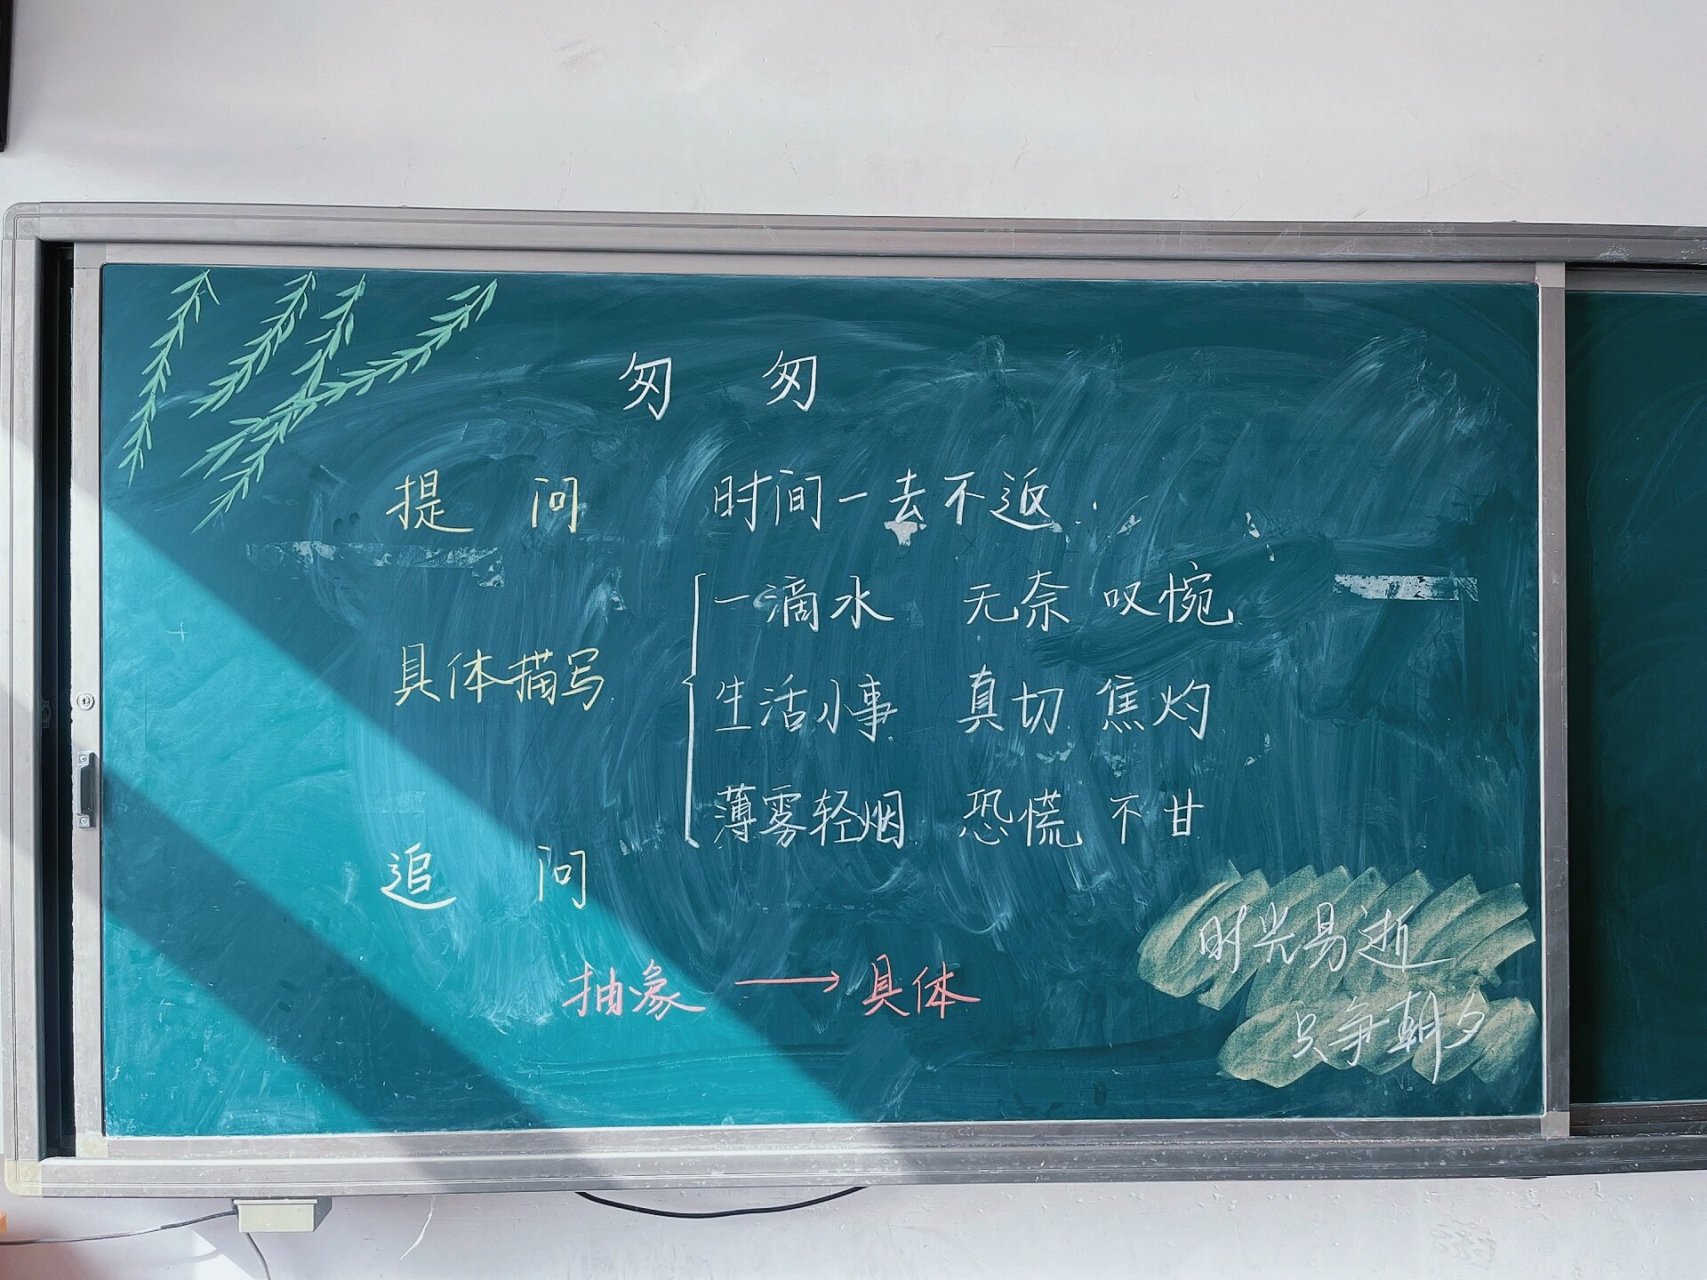 匆 匆
提 问 时间一去不返
一滴水 无奈 叹惋
具体描写 生活小事 真切 焦灼
薄雾轻烟 恐慌 不甘
追 问
抽象 → 具体
时光易逝
只争朝夕